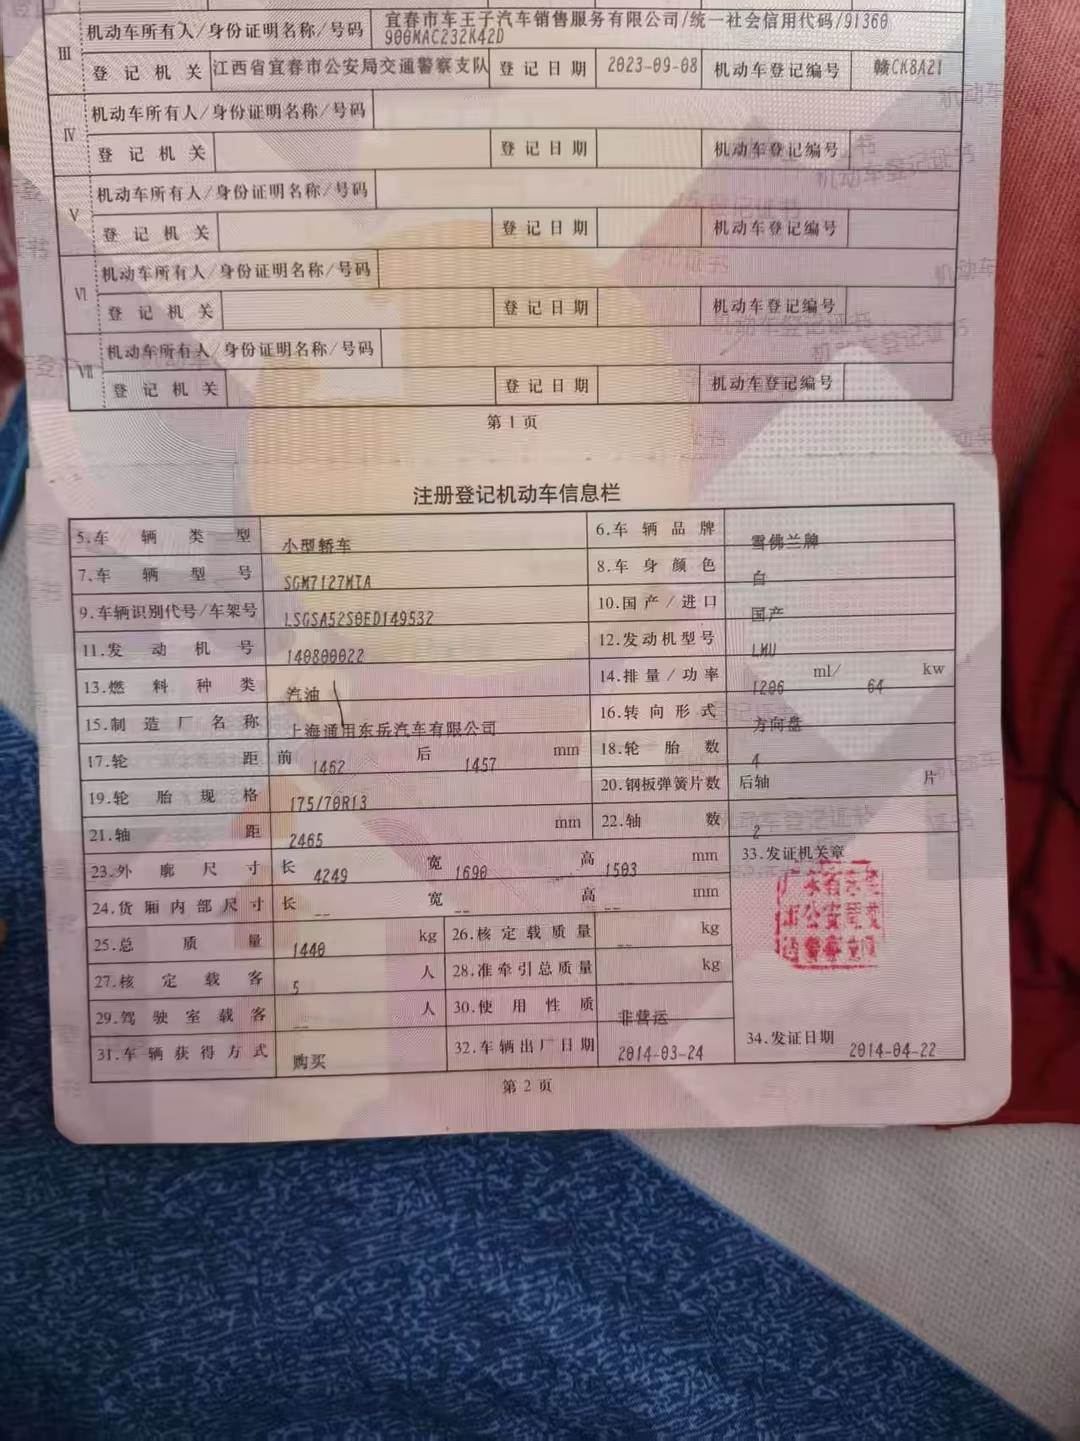 Ⅲ 机动车所有人/身份证明名称/号码 宜春市车王子汽车销售服务有限公司/统一社会信用代码/91360
900MAC232K42D
登记机关 江西省宜春市公安局交通警察支队 登记日期 2023-09-08 机动车登记编号 赣CK8A21
Ⅳ 机动车所有人/身份证明名称/号码
登记机关 登记日期 机动车登记编号
Ⅴ 机动车所有人/身份证明名称/号码
登记机关 登记日期 机动车登记编号
Ⅵ 机动车所有人/身份证明名称/号码
登记机关 登记日期 机动车登记编号
Ⅶ 机动车所有人/身份证明名称/号码
登记机关 登记日期 机动车登记编号
第1页
注册登记机动车信息栏
5.车辆类型 小型轿车 6.车辆品牌 雪佛兰牌
7.车辆型号 SGM7127MIA 8.车身颜色 白
9.车辆识别代号/车架号 LSGSA52S0ED149532 10.国产/进口 国产
11.发动机号 140800022 12.发动机型号 LMU
13.燃料种类 汽油 14.排量/功率 1206 ml/ 64 kw
15.制造厂名称 上海通用东岳汽车有限公司 16.转向形式 方向盘
17.轮距 前 1462 后 1457 mm 18.轮胎数 4
19.轮胎规格 175/70R13 20.钢板弹簧片数 后轴 片
21.轴距 2465 mm 22.轴数 2
23.外廓尺寸 长 4249 宽 1690 高 1503 mm 33.发证机关章
24.货厢内部尺寸 长 -- 宽 -- 高 -- mm
25.总质量 1440 kg 26.核定载质量 -- kg
27.核定载客 5 人 28.准牵引总质量 -- kg
29.驾驶室载客 -- 人 30.使用性质 非营运
31.车辆获得方式 购买 32.车辆出厂日期 2014-03-24 34.发证日期 2014-04-22
第2页